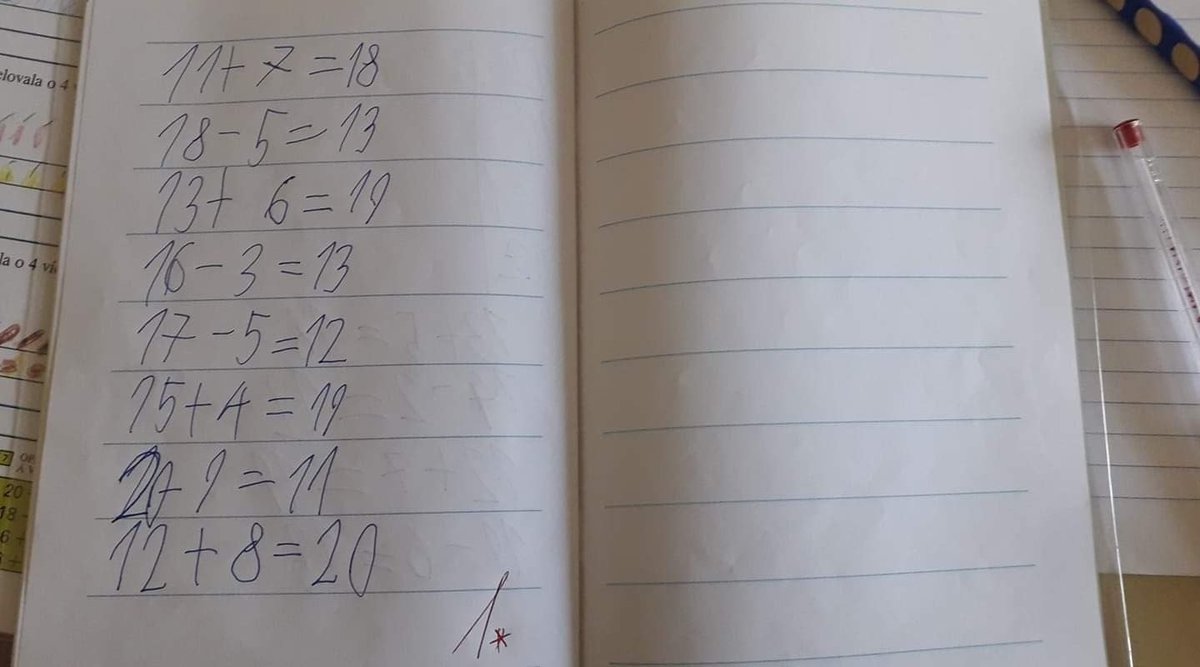 11+ 7 =18
18-5=13
13+ 6=19
16-3=13
17-5=12
15+4=19
20-9=11
12+8=20
1*
elovala o 4
la o 4 ví
7
20
18
6